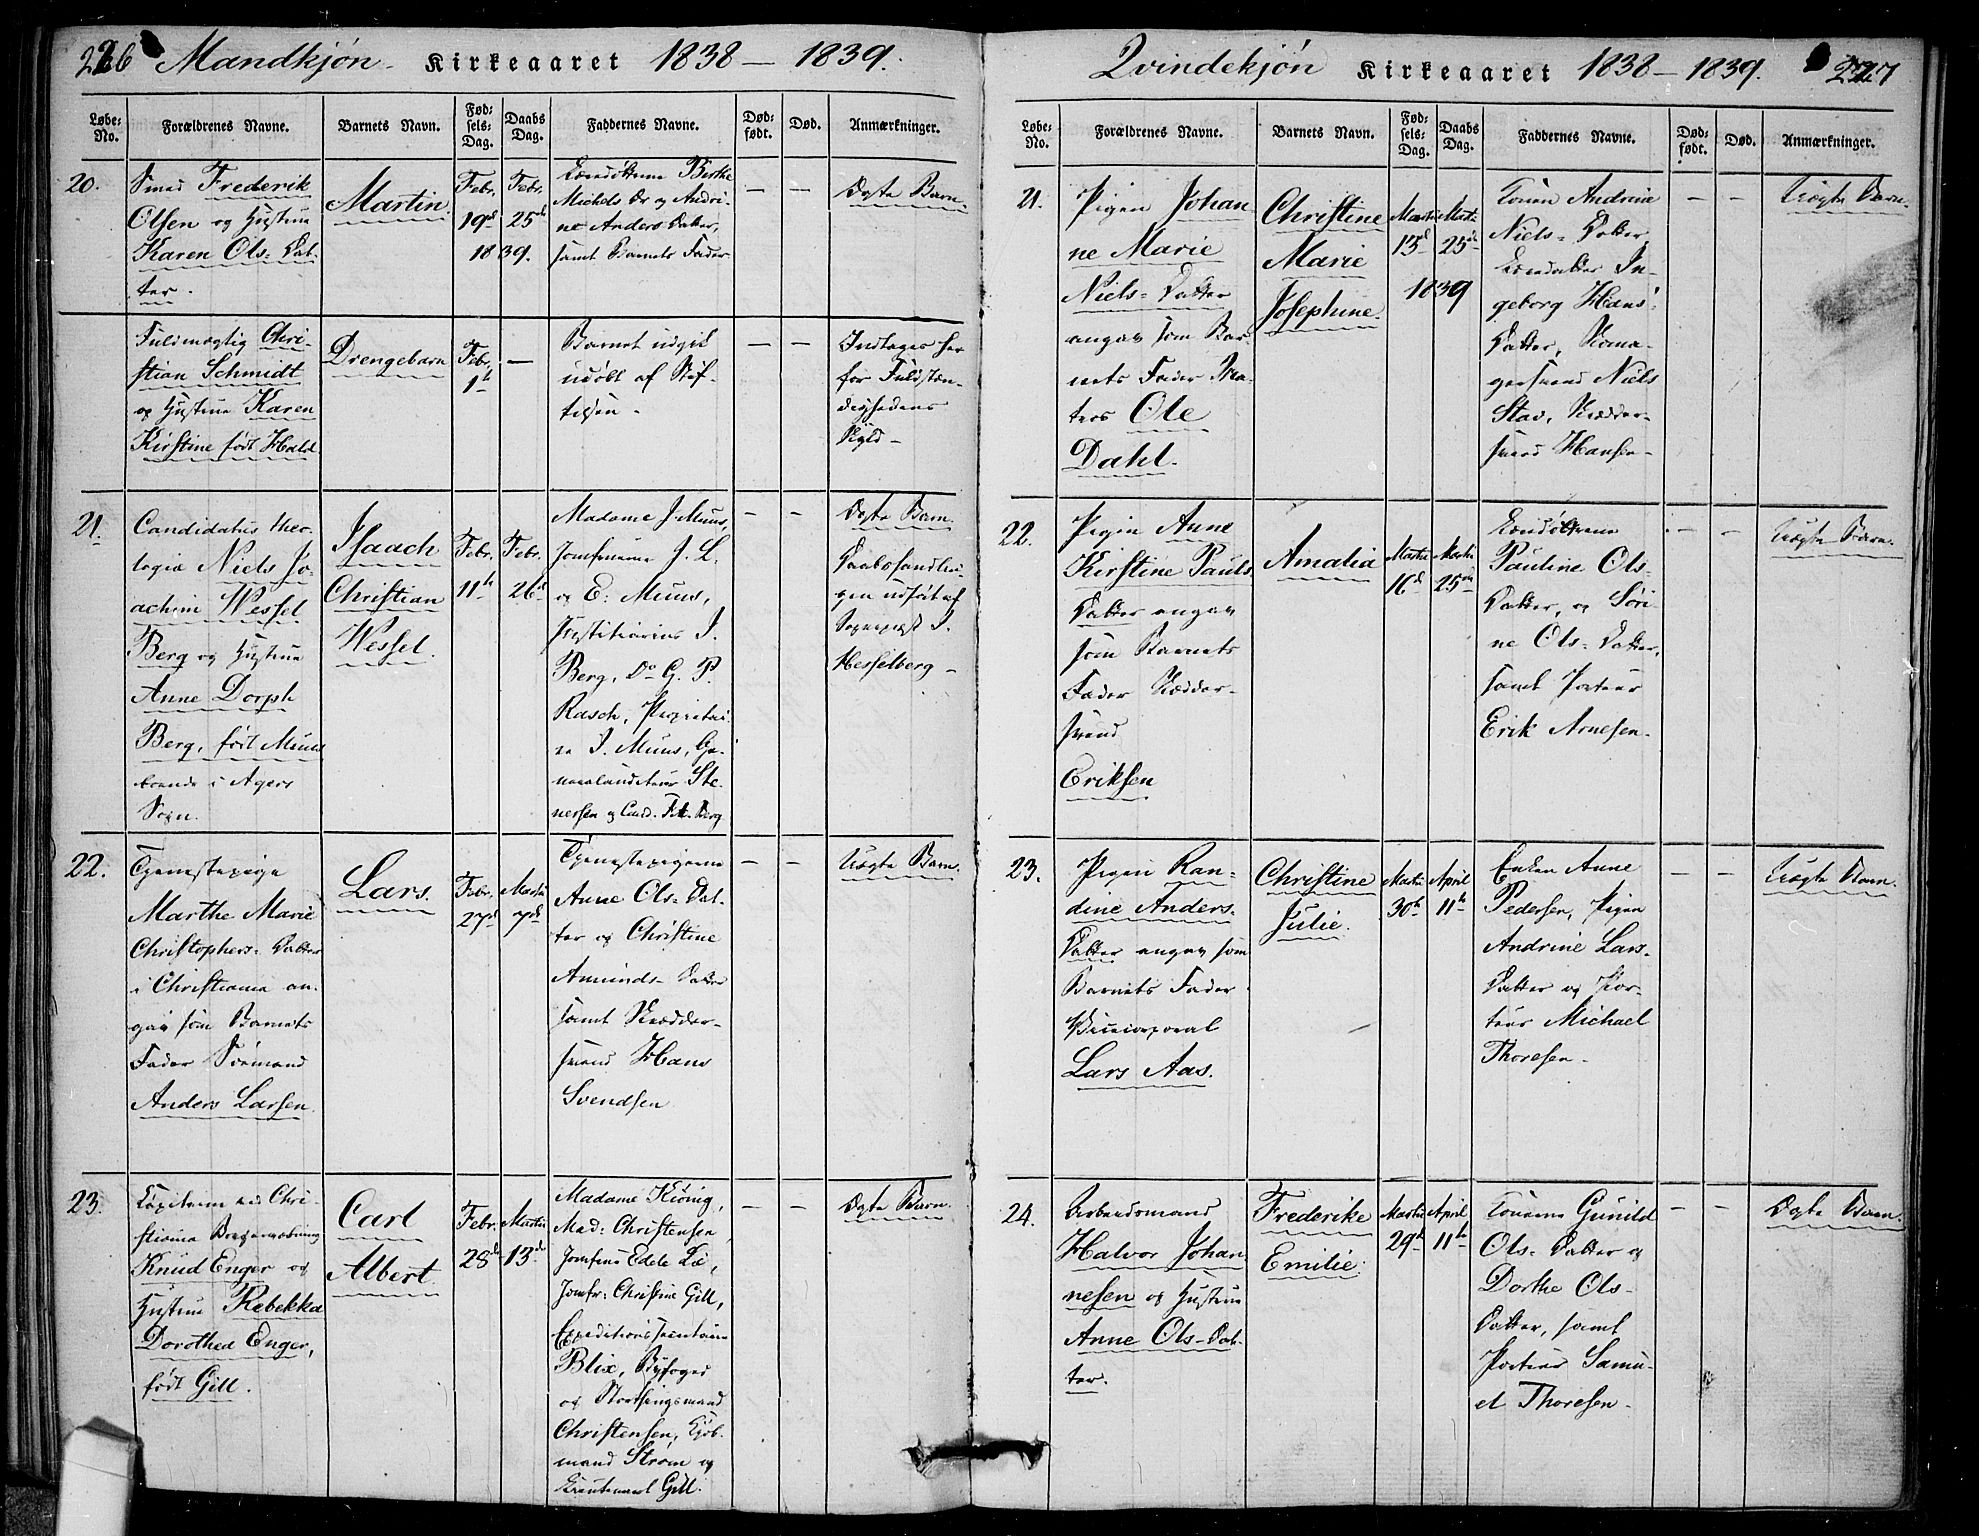 226 Mandkjøn. Kirkeaaret 1838 — 1839.
Løbe-No.
Forældrenes Navne.
Barnets Navn.
Fødsels-Dag.
Daabs Dag.
Faddernes Navne.
Dødfødt.
Død.
Anmærkninger.
20.
Smed Frederik
Olsen og Hustrue
Karen Ols=Dat-
ter.
Martin
Febr. 19d
Febr. 25de
1839.
Læredøttrene Berthe
Michels Dr og Andri-
ne Anders Datter,
samt Barnets Fader
— —
Ægte Barn.
Fuldmægtig Chri-
stian Schmidt
og Hustrue Karen
Kirstine født Hald
Drengebarn
Febr. 1te
—
Barnet udgik
udøbt af Stif-
telsen.
— —
Indtages her
for Fuldstæn-
dighedens
Skyld —
21.
Candidatus theo-
logiæ Niels Jo-
achim Wessel
Berg og Hustrue
Anne Dorph
Berg, født Muus
boende i Agers
Sogn.
Isaach
Christian
Wessel.
Febr. 11te
Febr. 26de
Madame J. Muus,
Jomfruerne J. L.
og E. Muus,
Justitiarius J.
Berg, Do G. P.
Rasch, Proprietai-
re J. Muus, Ge-
neralauditeur Ste-
nersen og Cand. Berg
— —
Ægte Barn.
Daabshandlin-
gen udført af
Sognepræst J.
Hesselberg —
22.
Tjenestepige
Marthe Marie
Christophers=Datter
i Christiania an-
gav som Barnets
Fader Sømand
Anders Larsen.
Lars.
Febr. 27d
Martii 7de
Tjenestepigerne
Anne Ols=Dat-
ter og Christine
Amunds=Datter
samt Skrædder-
svend Hans
Svendsen
— —
Uægte Barn.
23.
Capitain ved Chri-
stiania Borgervæbning
Knud Enger og
Hustrue Rebekka
Dorothea Enger,
født Gill.
Carl
Albert.
Febr. 28de
Martii 13de
Madame Kiønig,
Mad: Christensen
Jomfrue Edele Lie,
Jomfr: Christine Gill,
Expeditionssecretair
Blix, Byfoged
og Storthingsmand
Christensen, Kjøb-
mand Strøm og
Lieutenant Gill.
— —
Ægte Barn.
Qvindekjøn Kirkeaaret 1838 — 1839. 227
Løbe-No.
Forældrenes Navne.
Barnets Navn.
Fødsels-Dag.
Daabs Dag.
Faddernes Navne.
Dødfødt.
Død.
Anmærkninger.
21.
Pigen Johan
ne Marie
Niels=Datter
angav som Bar-
nets Fader
Ole
Dahl.
Christine
Marie
Josephine.
Martii 13d
Martii 25de
1839
Konen Andrine
Niels=Datter
Læredatter In-
geborg Hans'
Datter, Skoma-
gersvend Niels
Stav, Skrædder-
svend Hansen —
— —
Uægte Barn.
22.
Pigen Anne
Kirstine Pauls
Datter angav
som Barnets
Fader Skrædder-
svend
Eriksen
Amalia
Martii 16d
Martii 25de
Læredøttrene
Pauline Ols-
Datter, og Søri-
ne Ols=Datter,
samt Porteur
Erik Arnesen.
— —
Uægte Barn.
23.
Pigen Ran-
dine Anders-
Datter angav som
Barnets Fader
Vicecorporal
Lars Aas.
Christine
Julie.
Martii 30te
April 11te
Enken Anne
Pedersen, Pigen
Andrine Lars-
Datter og Por-
teur Michael
Thoresen —
— —
Uægte Barn.
24.
Arbeidsmand
Halvor Johan
nesen og Hustrue
Anne Ols-Dat-
ter.
Frederike
Emilie.
Martii 29te
April 11te
Konerne Gunild
Ols=Datter og
Dorthe Ols-
Datter, samt
Porteur Samu-
el Thoresen —
— —
Ægte Barn.